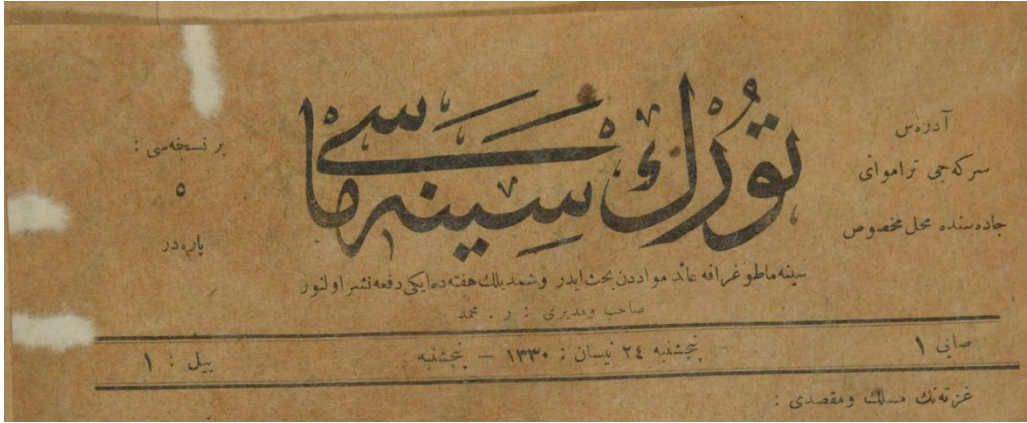 تورك سينه ماسى
آدرەس
سركه جى تراموای
جاده سنده محل مخصوص
بر نسخه سى :
٥
پاره در
سينه ماطوغرافه عائد مواددن بحث ايدر وشمديلك هفته ده ايكى دفعه نشر اولنور
صاحب ومديرى : ر . محمد
صايى ١
پنجشنبه ٢٤ نيسان : ١٣٣٠ — پنجشنبه
ييل : ١
غزته نك مسلك ومقصدى :